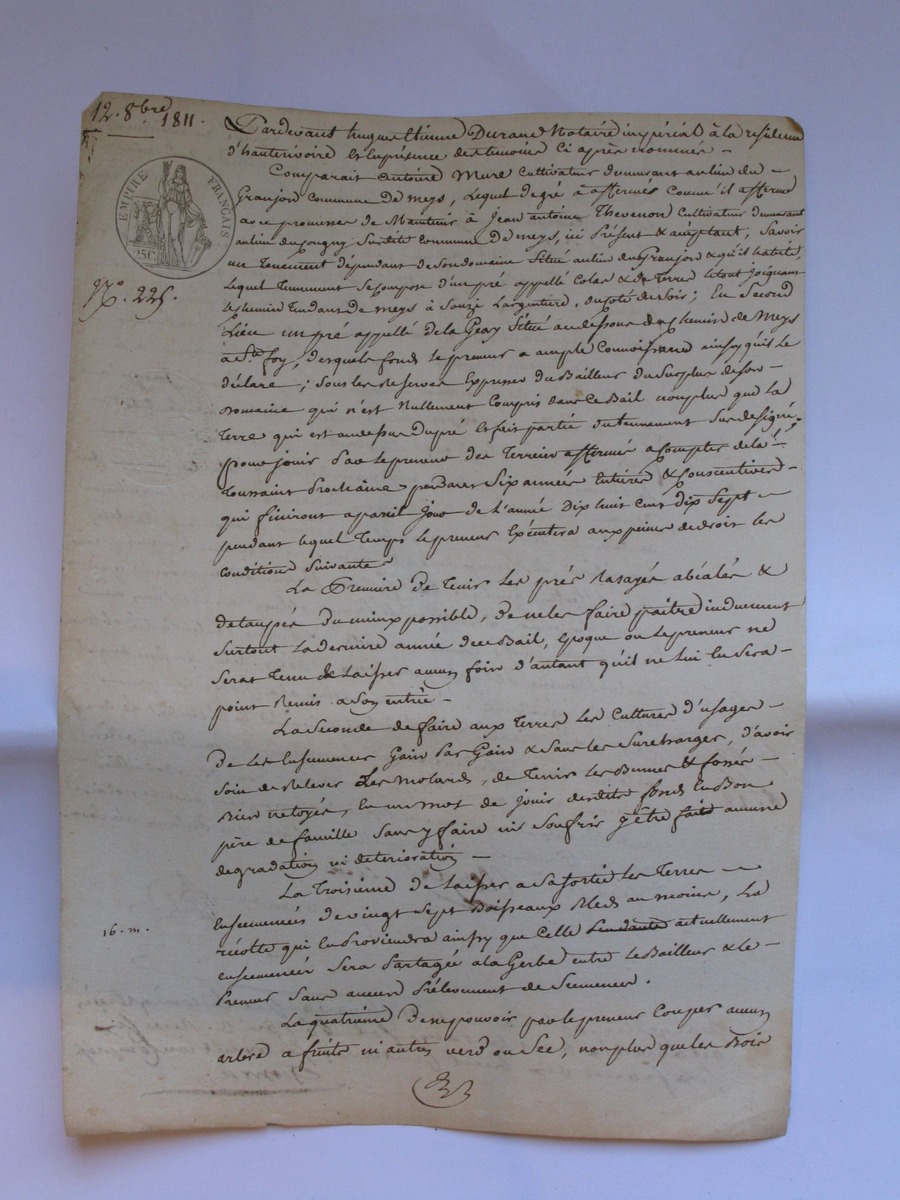 12. 8bre 1811.
Pardevant hugues Etienne Durand Notaire impérial à la residence
d'hauterivoire Et En présence des temoins Ci après nommés –
EMPIRE FRANÇAIS
25C
Comparait Antoine Mure Cultivateur demeurant au lieu du –
Granjon Commune De meys, Lequel de gré à affermé Comme il afferme
avec promesse de Maintenir à Jean antoine Thevenon Cultivateur demeurant
au lieu du sugny Sus dite Commune de meys, ici Présent & acceptant; Savoir
un Tenement dépendant de Son domaine Situé au lieu du Granjon & qu'il habite,
N.o 225.
Lequel Tenement Se Compose d'un pré appellé Colas & de Terre le tout joignant
Le chemin Tendant de meys à Souzi Largentiere, du Coté de Soir; En Second
Lieu un pré appellé de la Geay Situé au dessous du Chemin de Meys
à Ste foy, desquels fonds Le preneur a ample Connoissance ainsy qu'il Le
déclare; Sous les Reserves Expresses du Bailleur du Surplus de son –
Domaine qui n'est Nullement Compris dans Ce Bail non plus que La
Terre qui est au dessus Du pré Et fait partie du tennement Sus designé;
pour jouir Par le preneur des Terreins affermés a Compter de la –
Toussaint Prochaine pendant Six années Entieres & Consecutives –
qui finiront a pareil jour de L'année Dix huit Cent Dix Sept –
pendant lequel Temps le preneur Exécutera aux peines de droit les
Conditions Suivantes
La Premiere de Tenir Les prés Rasagés abéalés &
detaupés Du mieux possible, de ne les faire paître induement
Surtout La derniere année de ce Bail, Epoque ou Le preneur ne
Serat Tenu de Laisser aucun foin d'autant qu'il ne Lui En Sera –
point Remis a Son entrée –
La Seconde de faire aux Terres Les Cultures d'usages –
De Les Ensemencer Gain Par Gain & Sans les Surcharger, d'avoir
Soin de Relever Les molards, de Tenir Les Bunnes Et fossés –
Bien netoyés, En un mot de jouir desdits fonds En Bon
père de famille Sans y faire ni Soufrir y être fait aucune
degradation ni deterioration –
La Troisieme de Laisser a Sa sortie Les Terres –
Ensemencées de vingt Sept Boisseaux Bleds au moins, La
16. m.
récolte qui En Proviendra ainsy que Celle pendante actuellement
ensemencée Sera Partagée a la Gerbe entre Le Bailleur & Le –
Preneur Sans aucun Prélevement de Semences.
La quatrieme De ne pouvoir par le preneur Couper aucun
arbre a fruits ni autres verd ou Sec, non plus que les Bois